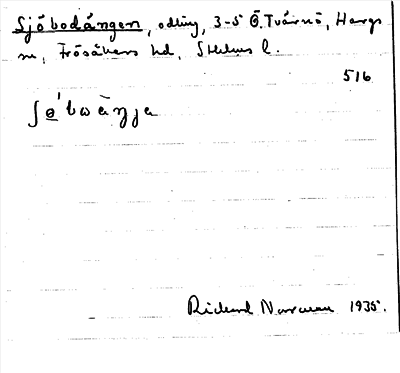 Sjöbodängen, odling, 3-5 Ö. Tvärnö, Hargs
sn, Frösåkers hd, Sthlms l.
516
ʃö́bωàŋja
Richard Norrman 1935.